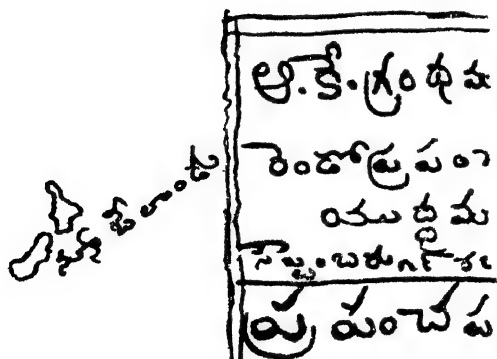 ఆ.కే.గ్రంథమ
రెండోప్రపం
యుద్ధమ
సెప్టెంబరు
ప్రపంచ ప